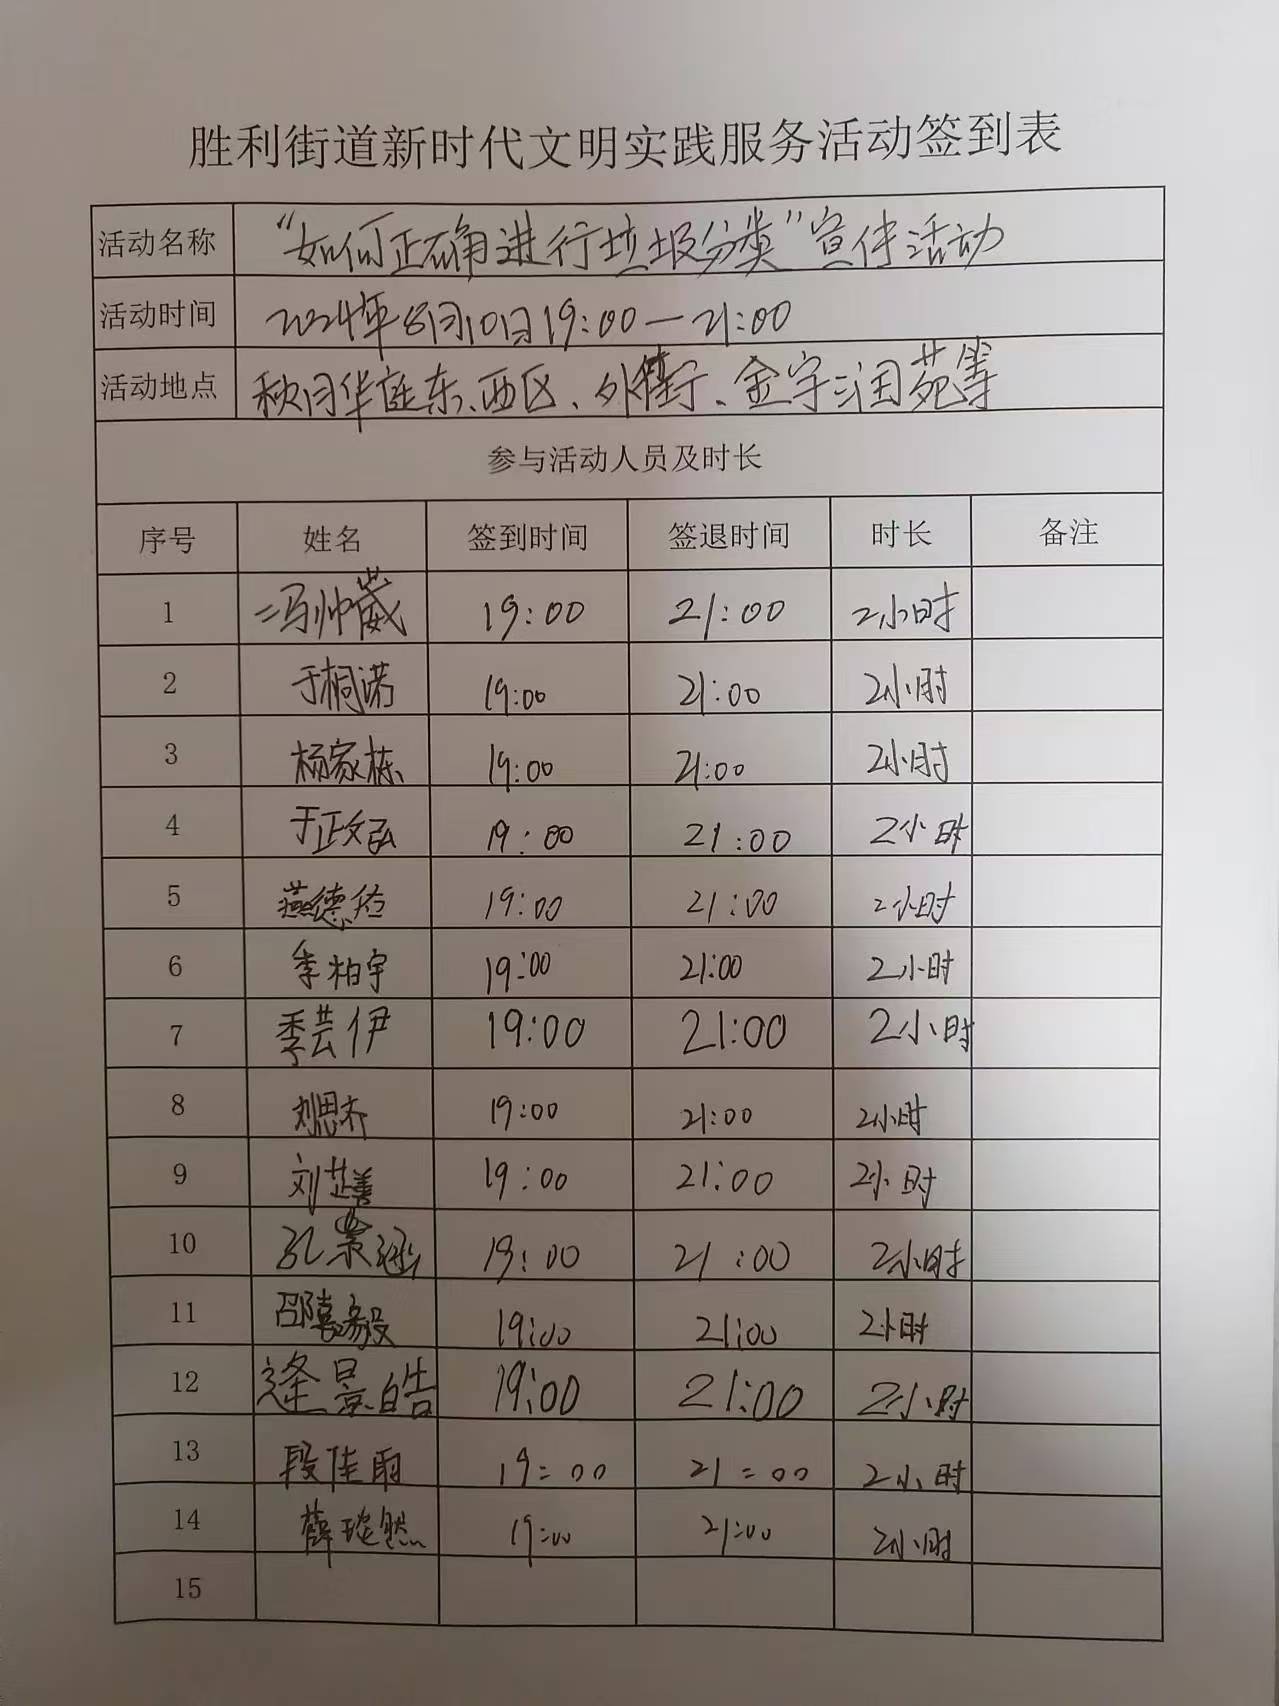 胜利街道新时代文明实践服务活动签到表
活动名称 “如何正确进行垃圾分类”宣传活动
活动时间 2024年8月10日19:00—21:00
活动地点 秋月华庭东、西区、外街、金宇润苑等
参与活动人员及时长
序号 姓名 签到时间 签退时间 时长 备注
1 冯帅崴 19:00 21:00 2小时
2 于桐诺 19:00 21:00 2小时
3 杨家栋 19:00 21:00 2小时
4 于正文弘 19:00 21:00 2小时
5 燕德 19:00 21:00 2小时
6 季柏宇 19:00 21:00 2小时
7 季芸伊 19:00 21:00 2小时
8 刘思齐 19:00 21:00 2小时
9 刘芷善 19:00 21:00 2小时
10 孔紫涵 19:00 21:00 2小时
11 邵熹毅 19:00 21:00 2小时
12 逄景皓 19:00 21:00 2小时
13 段佳雨 19:00 21:00 2小时
14 薛琁然 19:00 21:00 2小时
15